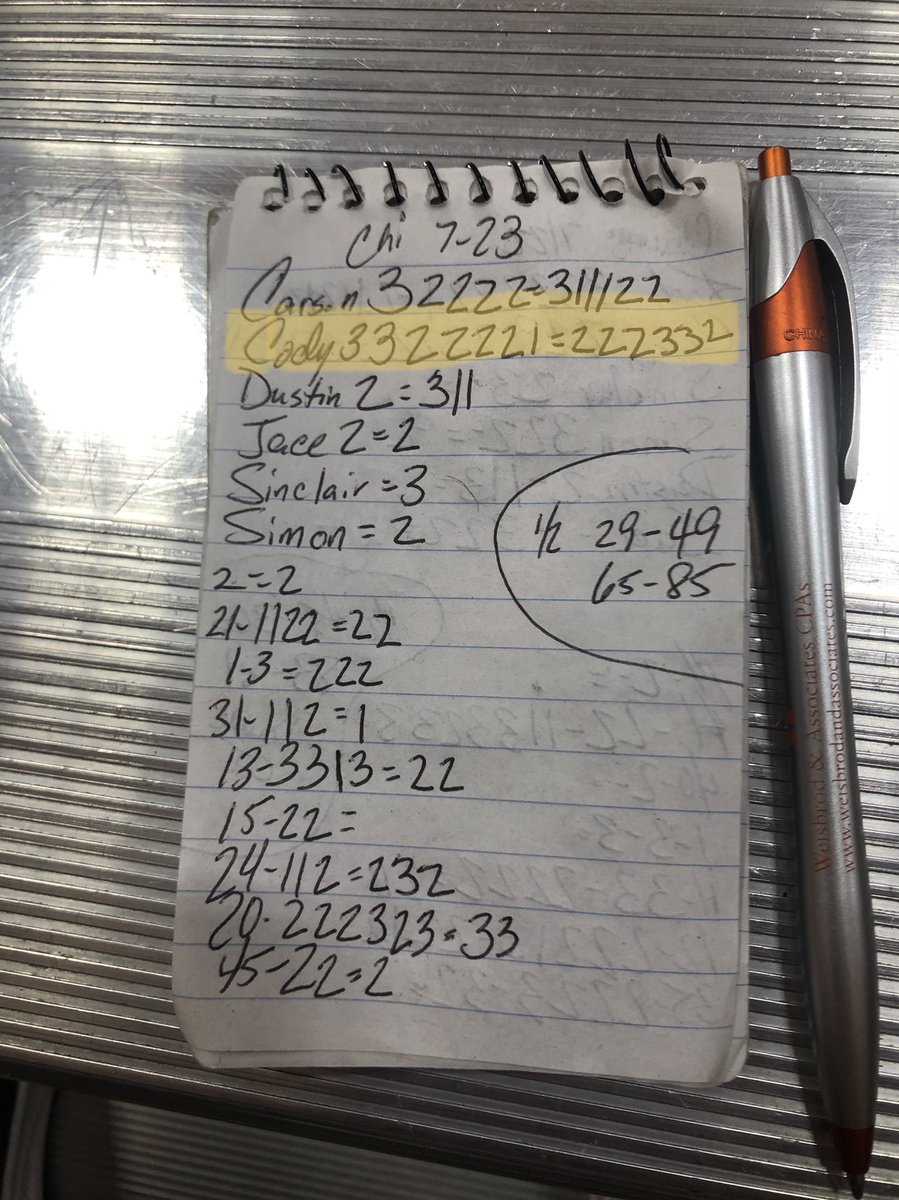 Chi 7-23
Carson 32222=311122
Cody 3322221=222332
Dustin 2=311
Jace 2=2
Sinclair=3
Simon=2
2=2
21-1122=22
1-3=222
31-112=1
13-3313=22
15-22=
24-112=232
20-222323=33
45-22=2
1/2 29-49
65-85
CHINA
Weisbrod & Associates CPAs
www.weisbrodandassociates.com